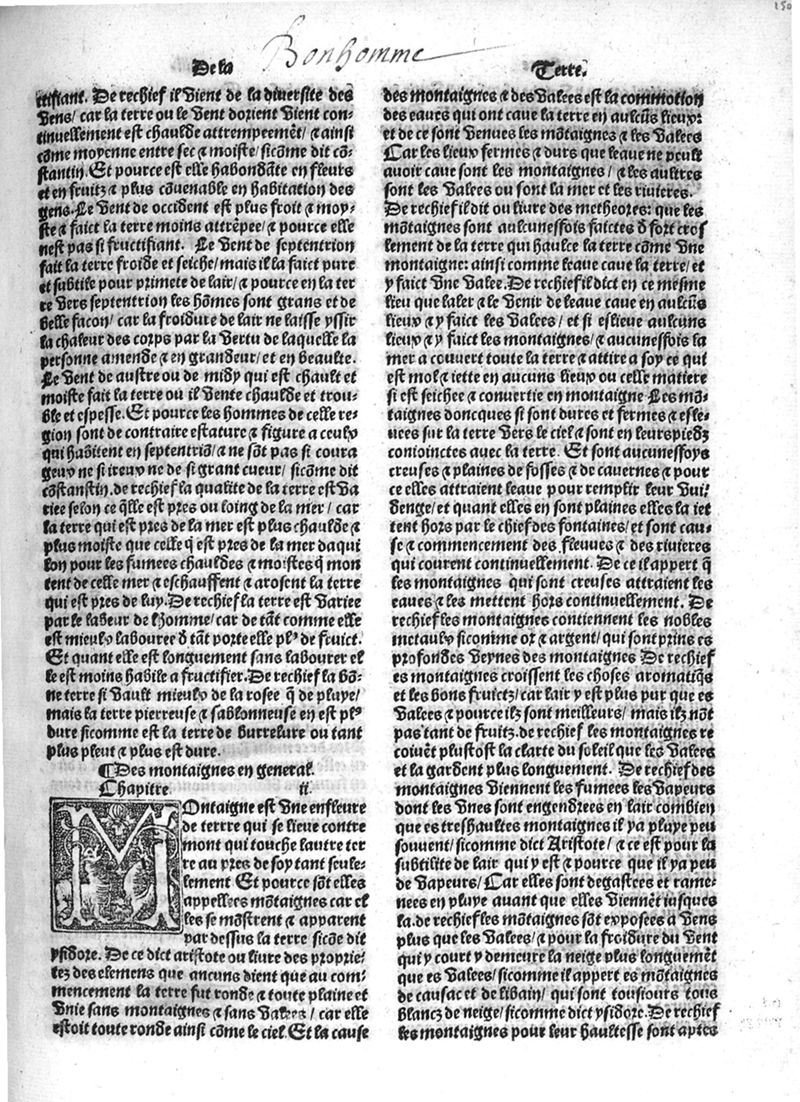 150
Bonhomme
De la
Terre.
ctifiant. De rechief il vient de la diversite des
vens/ car la terre ou le vent dorient vient con-
tinuellement est chaulde attrempeemēt/ ⁊ ainsi
cōme moyenne entre sec ⁊ moiste/ sicōme dit cō-
stantin. Et pource est elle habondāte en fleurs
et en fruitz ⁊ plus cōvenable en habitation des
gens. Le vent de occident est plus froit ⁊ moy-
ste ⁊ faict la terre moins attrēpee/ ⁊ pource elle
nest pas si fructifiant. Le vent de septentrion
fait la terre froide et seiche/ mais il la faict pure
et subtile pour primete de lair/ ⁊ pource en la ter
re vers septentrion les hōmes sont grans et de
belle facon/ car la froidure de lair ne laisse yssir
la chaleur des corps par la vertu de laquelle la
personne amende ⁊ en grandeur/ et en beaulte.
Le vent de austre ou de midy qui est chault et
moiste fait la terre ou il vente chaulde et trou-
ble et espesse. Et pource les hommes de celle re-
gion sont de contraire estature ⁊ figure a ceulx
qui habitent en septentriō/ ⁊ ne sōt pas si coura
geux ne si ireux ne de si grant cueur/ sicōme dit
cōstanstin. de rechief la qualite de la terre est va
riee selon ce q̄lle est pres ou loing de la mer/ car
la terre qui est pres de la mer est plus chaulde ⁊
plus moiste que celle q̄ est pres de la mer daqui
lon pour les fumees chauldes ⁊ moistes q̄ mon
tent de celle mer ⁊ eschauffent ⁊ arosent la terre
qui est pres de luy. De rechief la terre est variee
par le labeur de lhomme/ car de tāt comme elle
est mieulx labouree d̄ tāt porte elle plꝰ de fruict.
Et quant elle est longuement sans labourer el
le est moins habile a fructifier. De rechief la bō-
ne terre si vault mieulx de la rosee q̄ de pluye/
mais la terre pierreuse ⁊ sablonneuse en est plꝰ
dure sicomme est la terre de burrelure ou tant
plus pleut ⁊ plus est dure.
¶Des montaignes en general.
Chapitre ii.
MOntaigne est vne enfleure
de terrre qui se lieve contre
mont qui touche lautre ter
re au pres de soy tant seule-
lement Et pource sōt elles
appellees mōtaignes car el
les se mōstrent ⁊ apparent
par dessus la terre sicōe dit
ysidore. De ce dict aristote ou livre des proprie-
tez des elemens que aucuns dient que au com-
mencement la terre fut ronde ⁊ toute plaine et
vnie sans montaignes ⁊ sans valees/ car elle
estoit toute ronde ainsi cōme le ciel. Et la cause
des montaignes ⁊ des valees est la commotion
des eaues qui ont cave la terre en aulcūs lieux:
et de ce sont venues les mōtaignes ⁊ les valees
Car les lieux fermes ⁊ durs que leaue ne peult
avoir cave sont les montaignes/ ⁊ les aultres
sont les valees ou sont la mer et les rivieres.
De rechief il dit ou livre des metheores: que les
mōtaignes sont aulcunessfois faictes d̄ fort cros
lement de la terre qui haulce la terre cōme vne
montaigne: ainsi comme leaue cave la terre/ et
y faict vne valee. De rechief il dict en ce mēsme
lieu que laler ⁊ le venir de leaue cave en aulcūs
lieux ⁊ y faict les valees/ et si eslieve aulcuns
lieux ⁊ y faict les montaignes/ ⁊ aucunessfois la
mer a couvert toute la terre ⁊ attire a soy ce qui
est mol ⁊ iette en aucuns lieux ou celle matiere
si est seichee ⁊ convertie en montaigne Les mō-
taignes doncques si sont dures et fermes ⁊ esle-
uees sur la terre vers le ciel ⁊ sont en leurs piedz
conioinctes avec la terre. Et sont aucunessfoys
creuses ⁊ plaines de fosses ⁊ de cavernes ⁊ pour
ce elles attraient leaue pour remplir leur vui-
denge/ et quant elles en sont plaines elles la iet
tent hors par le chief des fontaines/ et sont cau-
se ⁊ commencement des fleuves ⁊ des rivieres
qui courent continuellement. De ce il appert q̄
les montaignes qui sont creuses attraient les
eaues ⁊ les mettent hors continuellement. De
rechief les montaignes contiennent les nobles
metaulx siconme or ⁊ argent/ qui sont prins es
profondes veynes des montaignes De rechief
es montaignes croissent les choses aromatiq̄s
et les bons fruictz/ car lair y est plus pur que es
valees ⁊ pource ilz sont meilleurs/ mais ilz nōt
pas tant de fruitz. de rechief les montaignes re
coivēt plustost la clarte du soleil que les valees
et la gardent plus longuement. De rechief des
montaignes viennent les fumees les vapeurs
dont les vnes sont engendrees en lair combien
que es treshaultes montaignes il ya pluye peu
souvent/ sicomme dict Aristote/ ⁊ ce est pour la
subtilite de lair qui y est ⁊ pource que il ya peu
de vapeurs/ Car elles sont degastees et rame-
nees en pluye avant que elles viennēt iusques
la. de rechief les mōtaignes sōt exposees a vens
plus que les valees/ ⁊ pour la froidure du vent
qui y court y demeure la neige plus longuemēt
que es valees/ sicomme il appert es mōtaignes
de causac et de libain/ qui sont tousiours tous
blancz de neige/ sicomme dict ysidore. De rechief
les montaignes pour leur haultesse sont aptes